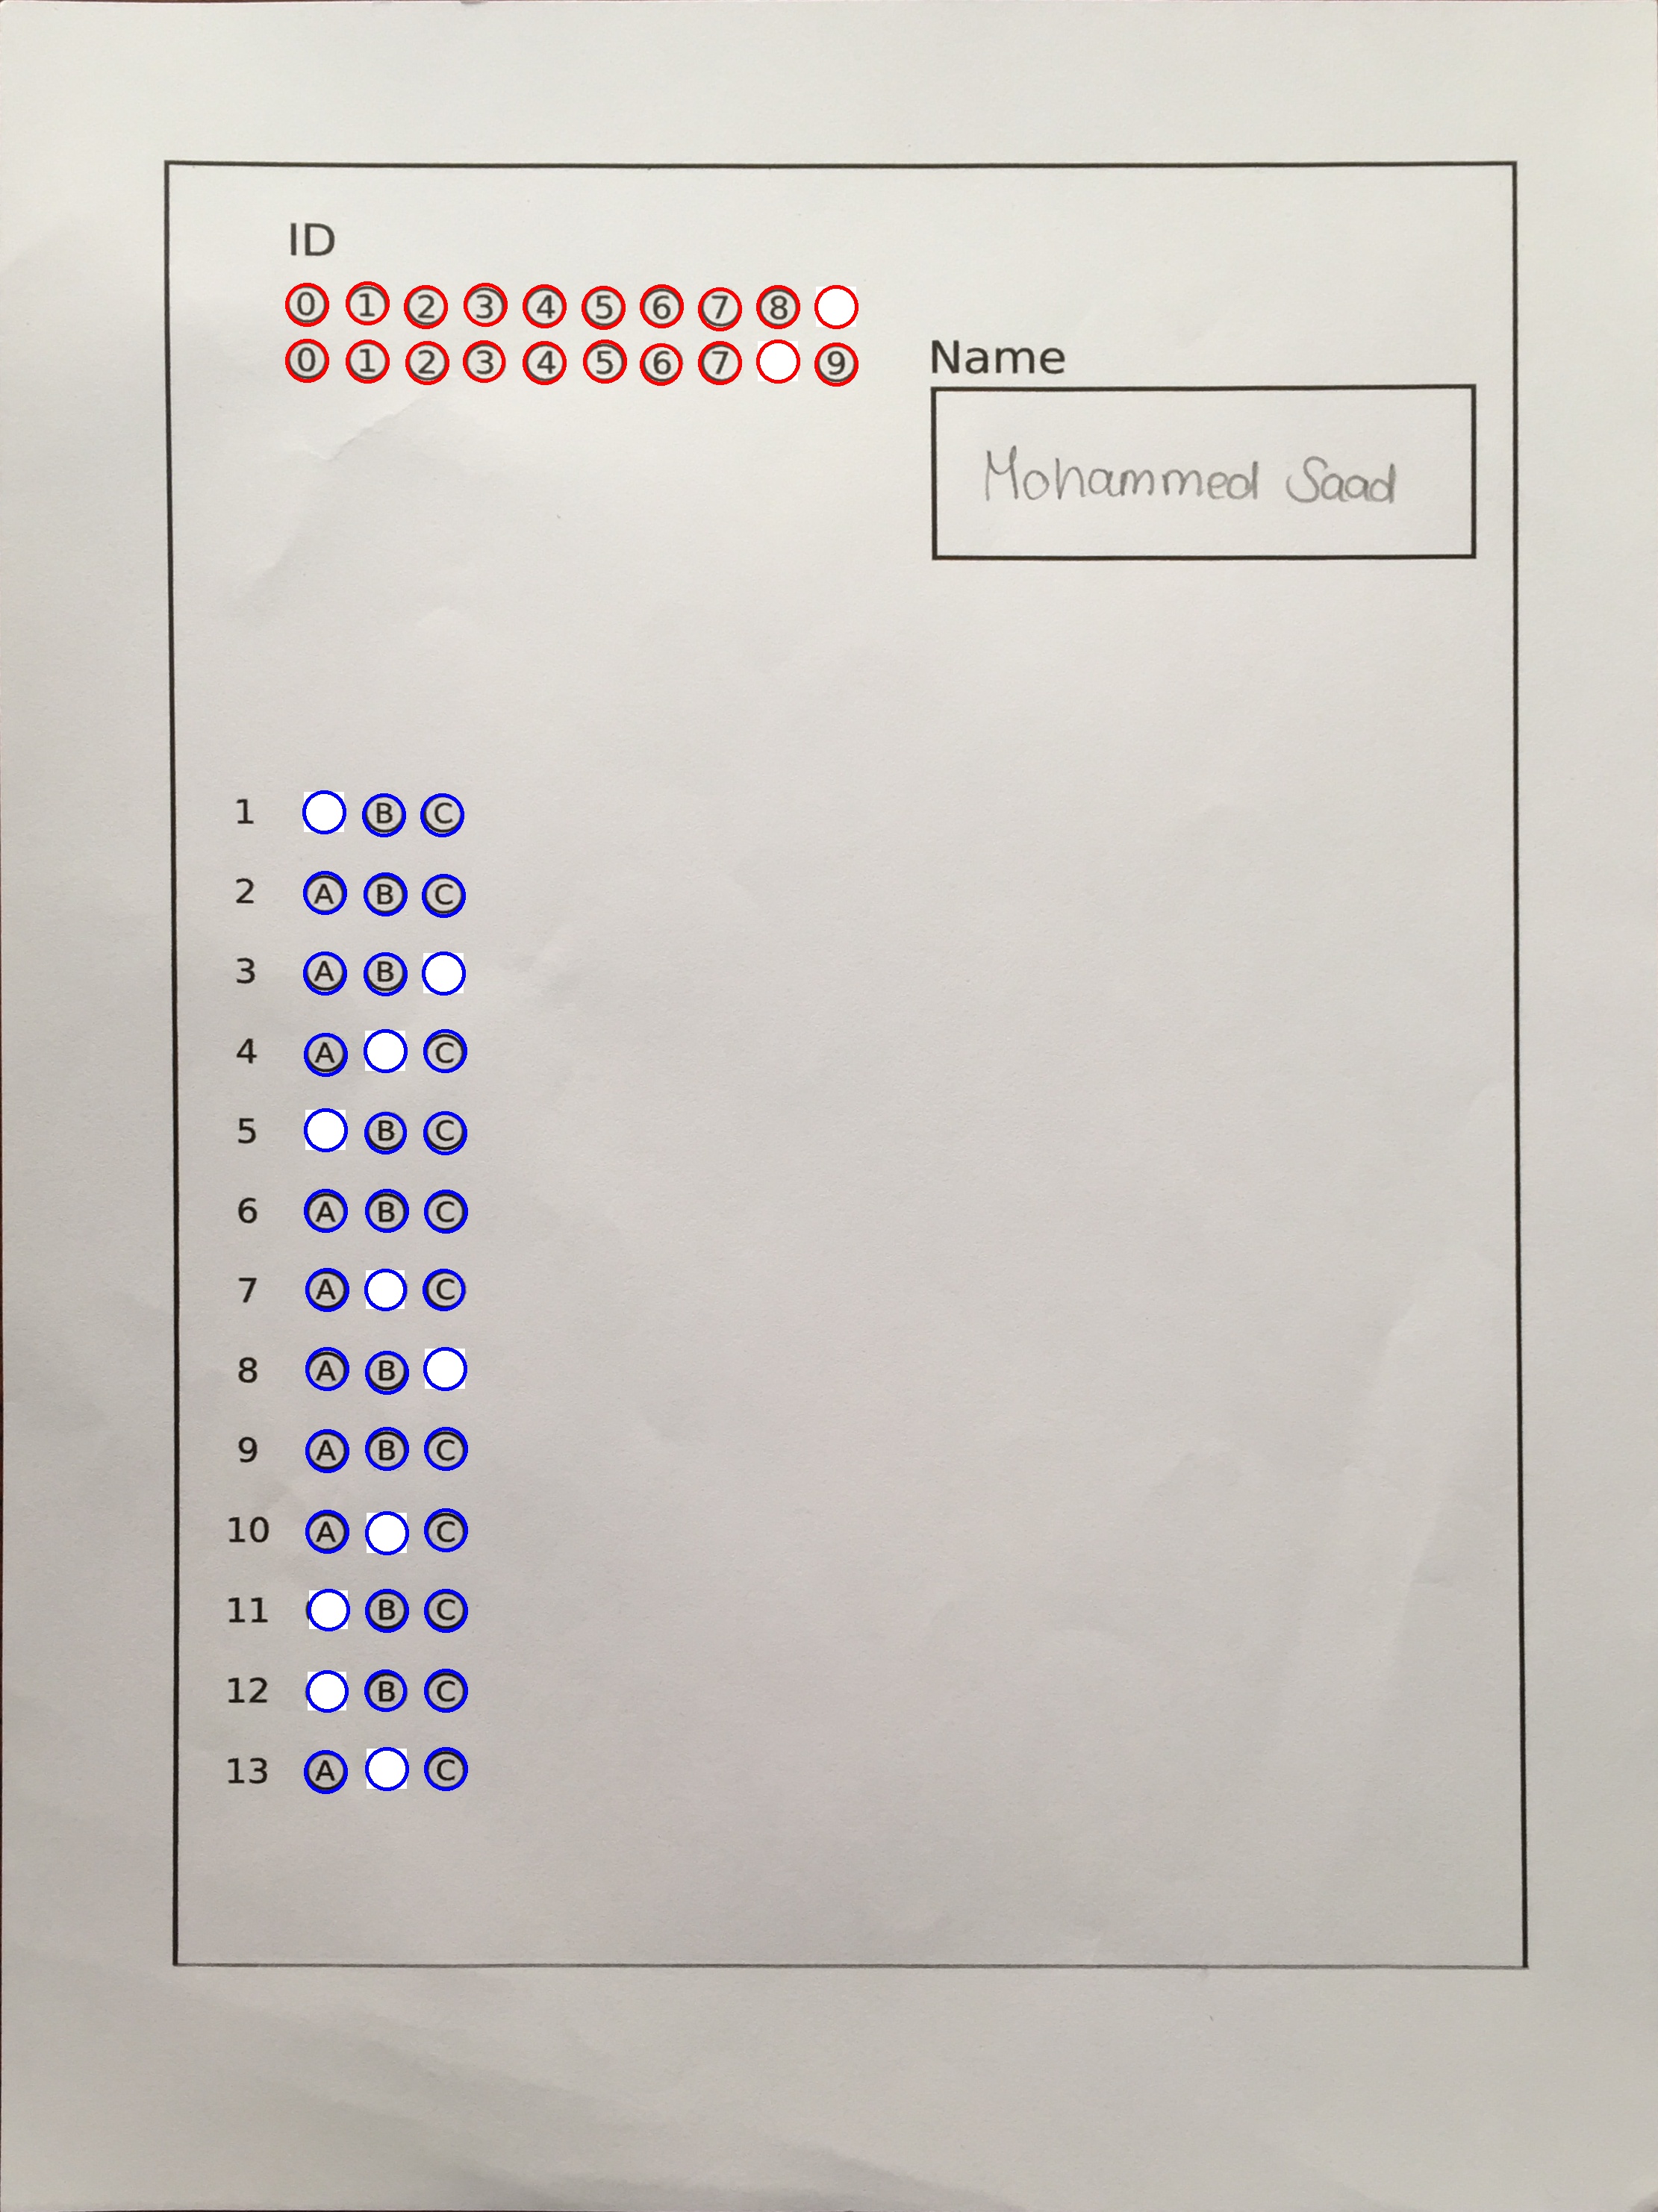 ID
0 1 2 3 4 5 6 7 8
0 1 2 3 4 5 6 7 9
Name
Mohammed Saad
1 B C
2 A B C
3 A B
4 A C
5 B C
6 A B C
7 A C
8 A B
9 A B C
10 A C
11 B C
12 B C
13 A C